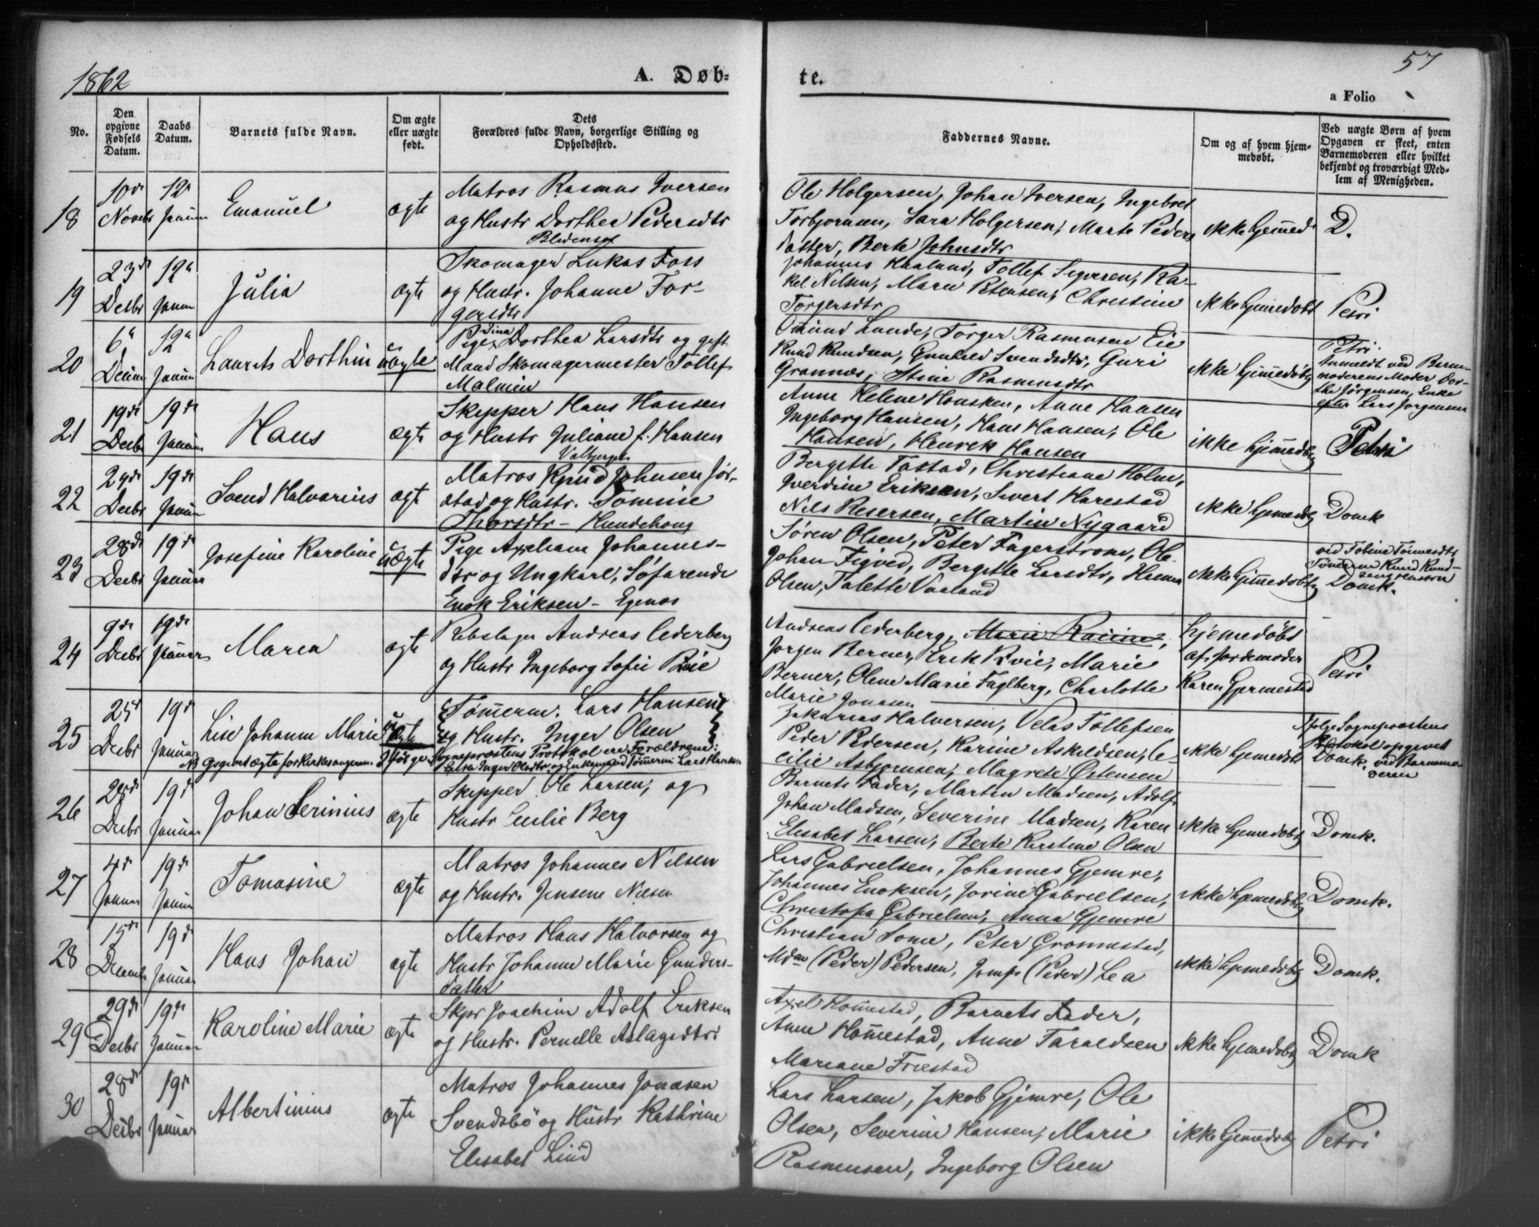 1862
A. Døbte.
57
a Folio
No.
Den opgivne Fødsels Datum.
Daabs Datum.
Barnets fulde Navn.
Om ægte eller uægte født.
Dets Forældres fulde Navn, borgerlige Stilling og Opholdssted.
Faddernes Navne.
Om og af hvem hjemmedøbt.
Ved uægte Børn af hvem Opgaven er skeet, enten Barnemoderen eller hvilket bekjendt og troværdigt Medlem af Menigheden.
18
10de Novbr
12te Januar
Emanuel
ægte
Matros Rasmus Iversen
og Hustr Dorthea Pedersdtr
Ole Holgersen, Johan Iversen, Ingebret
Torbjornsen, Sara Holgersen, Marte Peders
datter, Berte Johnsdtr
ikke hjemmed
D.
19
23de Decbr
12te Januar
Julia
ægte
Skomager Lukas Foss
og Hustr. Johanne Tor-
gersdtr
Johannes Haaland, Tollef Siversen, Ra-
kel Nilsen, Maren Petersen, Christine
Torgersdtr
ikke hjemmedøbt
Petri
20
6te
12te Januar
Laurets Dorthin
uægte
Pige Dina Dorthea Larsdtr og gift
Mand Skomagermester Tollef
Malmin
Omund Lunde, Torger Rasmussen Eie
Knud Knudsen, Gunhild Svendsdtr, Guri
Grannæs, Stine Rasmusdtr
ikke hjemmedøbt
Petri.
Anmeldt ved Barne-
moderens Moder Dor-
the Jørgensen, Enke
efter Lars Jørgensen
21
19de Decbr
19de Januar
Hans
ægte
Skipper Hans Hansen
og Hustr Juliane f. Hansen
Anne Helene Housken, Anne Hansen
Ingeborg Hansen, Hans Hansen, Ole
Hansen, Henrik Hansen
ikke hjemmedøbt
Petri
22
29de Decbr
19de Januar
Svend Halvarius
ægt
Matros Knud Johnsen Jør-
stad og Hustr. Tomine
Thorsdtr - Hundebong
Bergette Tastad, Christiane Holm,
Iverdine Eriksen, Sivert Harestad
Nils Pedersen, Martin Nygaard
ikke hjemmedøbt
Domk
23
28de Decbr
19de Januar
Josefine Karoline
uægte
Pige Axeliane Johannes-
dtr og Ungkarl, Søfarende
Enok Eriksen - Egenæs
Søren Olsen, Peter Fagerstrom, Ole
Johan Figved, Bergette Larsdtr,
Olsen, Talette Vaaland
ikke hjemmedøbt
Domk.
24
9de Decbr
19de Januar
Maren
ægte
Rebslager Andreas Cederberg
og Hustr Ingeborg Sofie Kvie
Andreas Cederberg,
Jorgen Berner, Erik Kvie, Marie
Berner, Olene Marie Faglberg, Charlotte
Marie Jonasen
hjemedøbt
af Jordemoder
Karen Gjermestad
Petri
25
25de Decbr
19de Januar
Lise Johanne Marie
uægte
Tømerm. Lars Hansen
og Hustr. Inger Olsen
Zakarias Halversen, Velas Tollefsen
Peder Pedersen, Karine Askeldsen, Ce-
cilie Asbjornsen, Magrete Østensen
ikke hjemmedøbt
ifølge Sogneprostens
Protokol opgivet
Domk. ved Barnemo-
deren
26
28de Decbr
19de Januar
Johan Serinius
ægte
Skipper Ole Larsen, og
Hustr Cecilie Berg
Barnets Fader, Martin Madsen, Adolf
Johan Madsen, Severine Madsen, Karen
Elisabet Larsen, Berte Kirstine Olsen
ikke hjemmedøbt
Domk.
27
4de Januar
19de Januar
Tomasine
ægte
Matros Johannes Nilsen
og Hustr. Jensene Næsen
Lars Gabrielsen, Johannes Gjemre,
Johannes Enoksen, Jorine Gabrielsen,
Christofa Gabrielsen, Anna Gjemre
ikke hjemmedøbt
Domk.
28
15de Decembr
19de Januar
Hans Johan
ægte
Matros Hans Halvorsen og
Hustr Johanne Marie Gunders-
datter
Christian Some, Peter Gromestad,
Mdm (Peder) Pedersen, Jomfr (Peder) Lea
ikke hjemmedøbt
Domk.
29
29de Decbr
19de Januar
Karoline Marie
ægte
Skpr Joachim Adolf Eriksen
og Hustr. Pernelle Aslagsdtr
Axel Homestad, Barnets Fader,
Anne Homestad, Anne Taraldsen
Mariane Friestad
ikke hjemmedøbt
Domk
30
28de Decbr
19de Januar
Albertinius
ægte
Matros Johannes Jonasen
Svendsbö og Hustr Kathrine
Elisabet Lind
Lars Larsen, Jakob Gjemre, Ole
Olsen, Severine Hansen, Marie
Rasmussen, Ingeborg Olsen
ikke hjemmedøbt
Petri